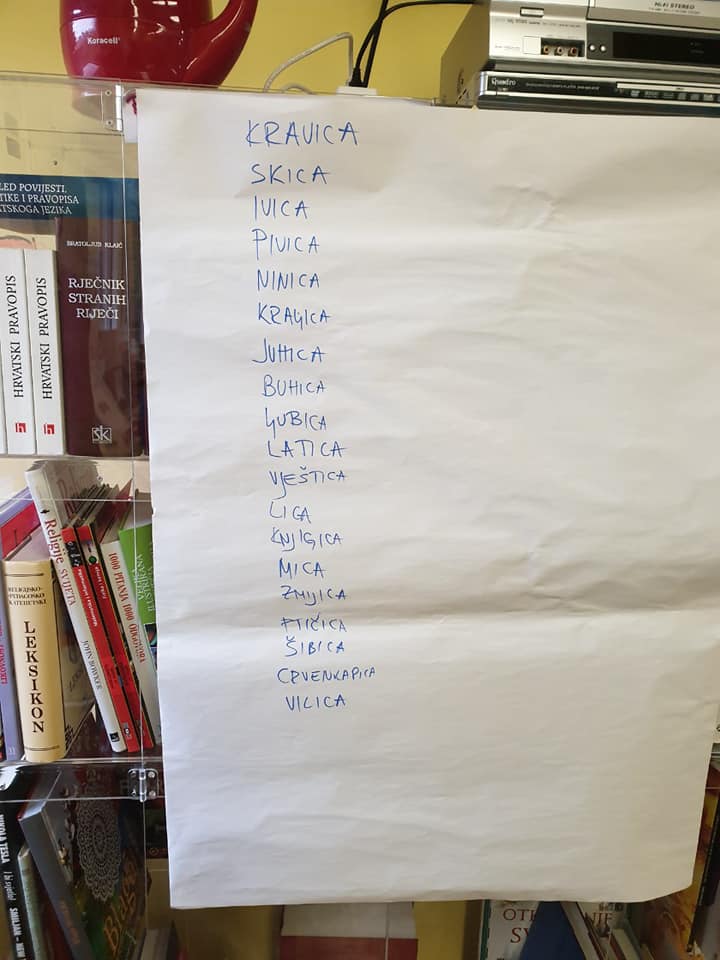 Koracell
HI-FI STEREO
Quadro
LED POVIJESTI,
TIKE I PRAVOPISA
TSKOGA JEZIKA
BRATOLJUB KLAIĆ
RJEČNIK
STRANIH
RIJEČI
HRVATSKI PRAVOPIS
HRVATSKI PRAVOPIS
ŠK
KRAVICA
SKICA
IVICA
PIVICA
NINICA
JUHICA
BUHICA
LJUBICA
LATICA
VJEŠTICA
KNJIGICA
MICA
ZMIJICA
PTIČICA
ŠIBICA
CRVENKAPICA
VILICA
Religije SVIJETA
JOHN BOWKER
1000 PITANJA 1000 ODGOVORA
RELIGIJSKO-
PEDAGOŠKO
KATEHETSKI
LEKSIKON
NIKOLA TESLA